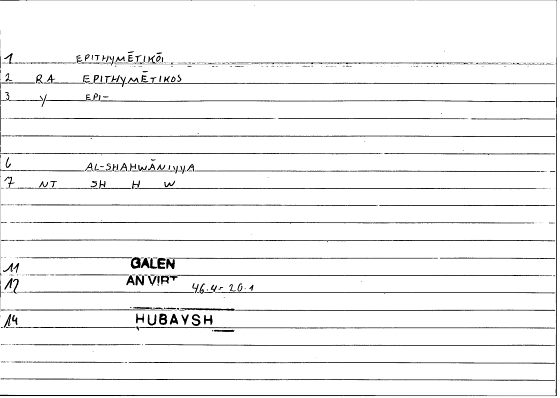 1 EPITHYMĒTIKŌI
2 RA EPITHYMĒTIKOS
3 Y EPI-
6 AL-SHAHWĀNIYYA
7 NT SH H W
11 GALEN
12 AN VIRT 46.4- 20.1
14 HUBAYSH